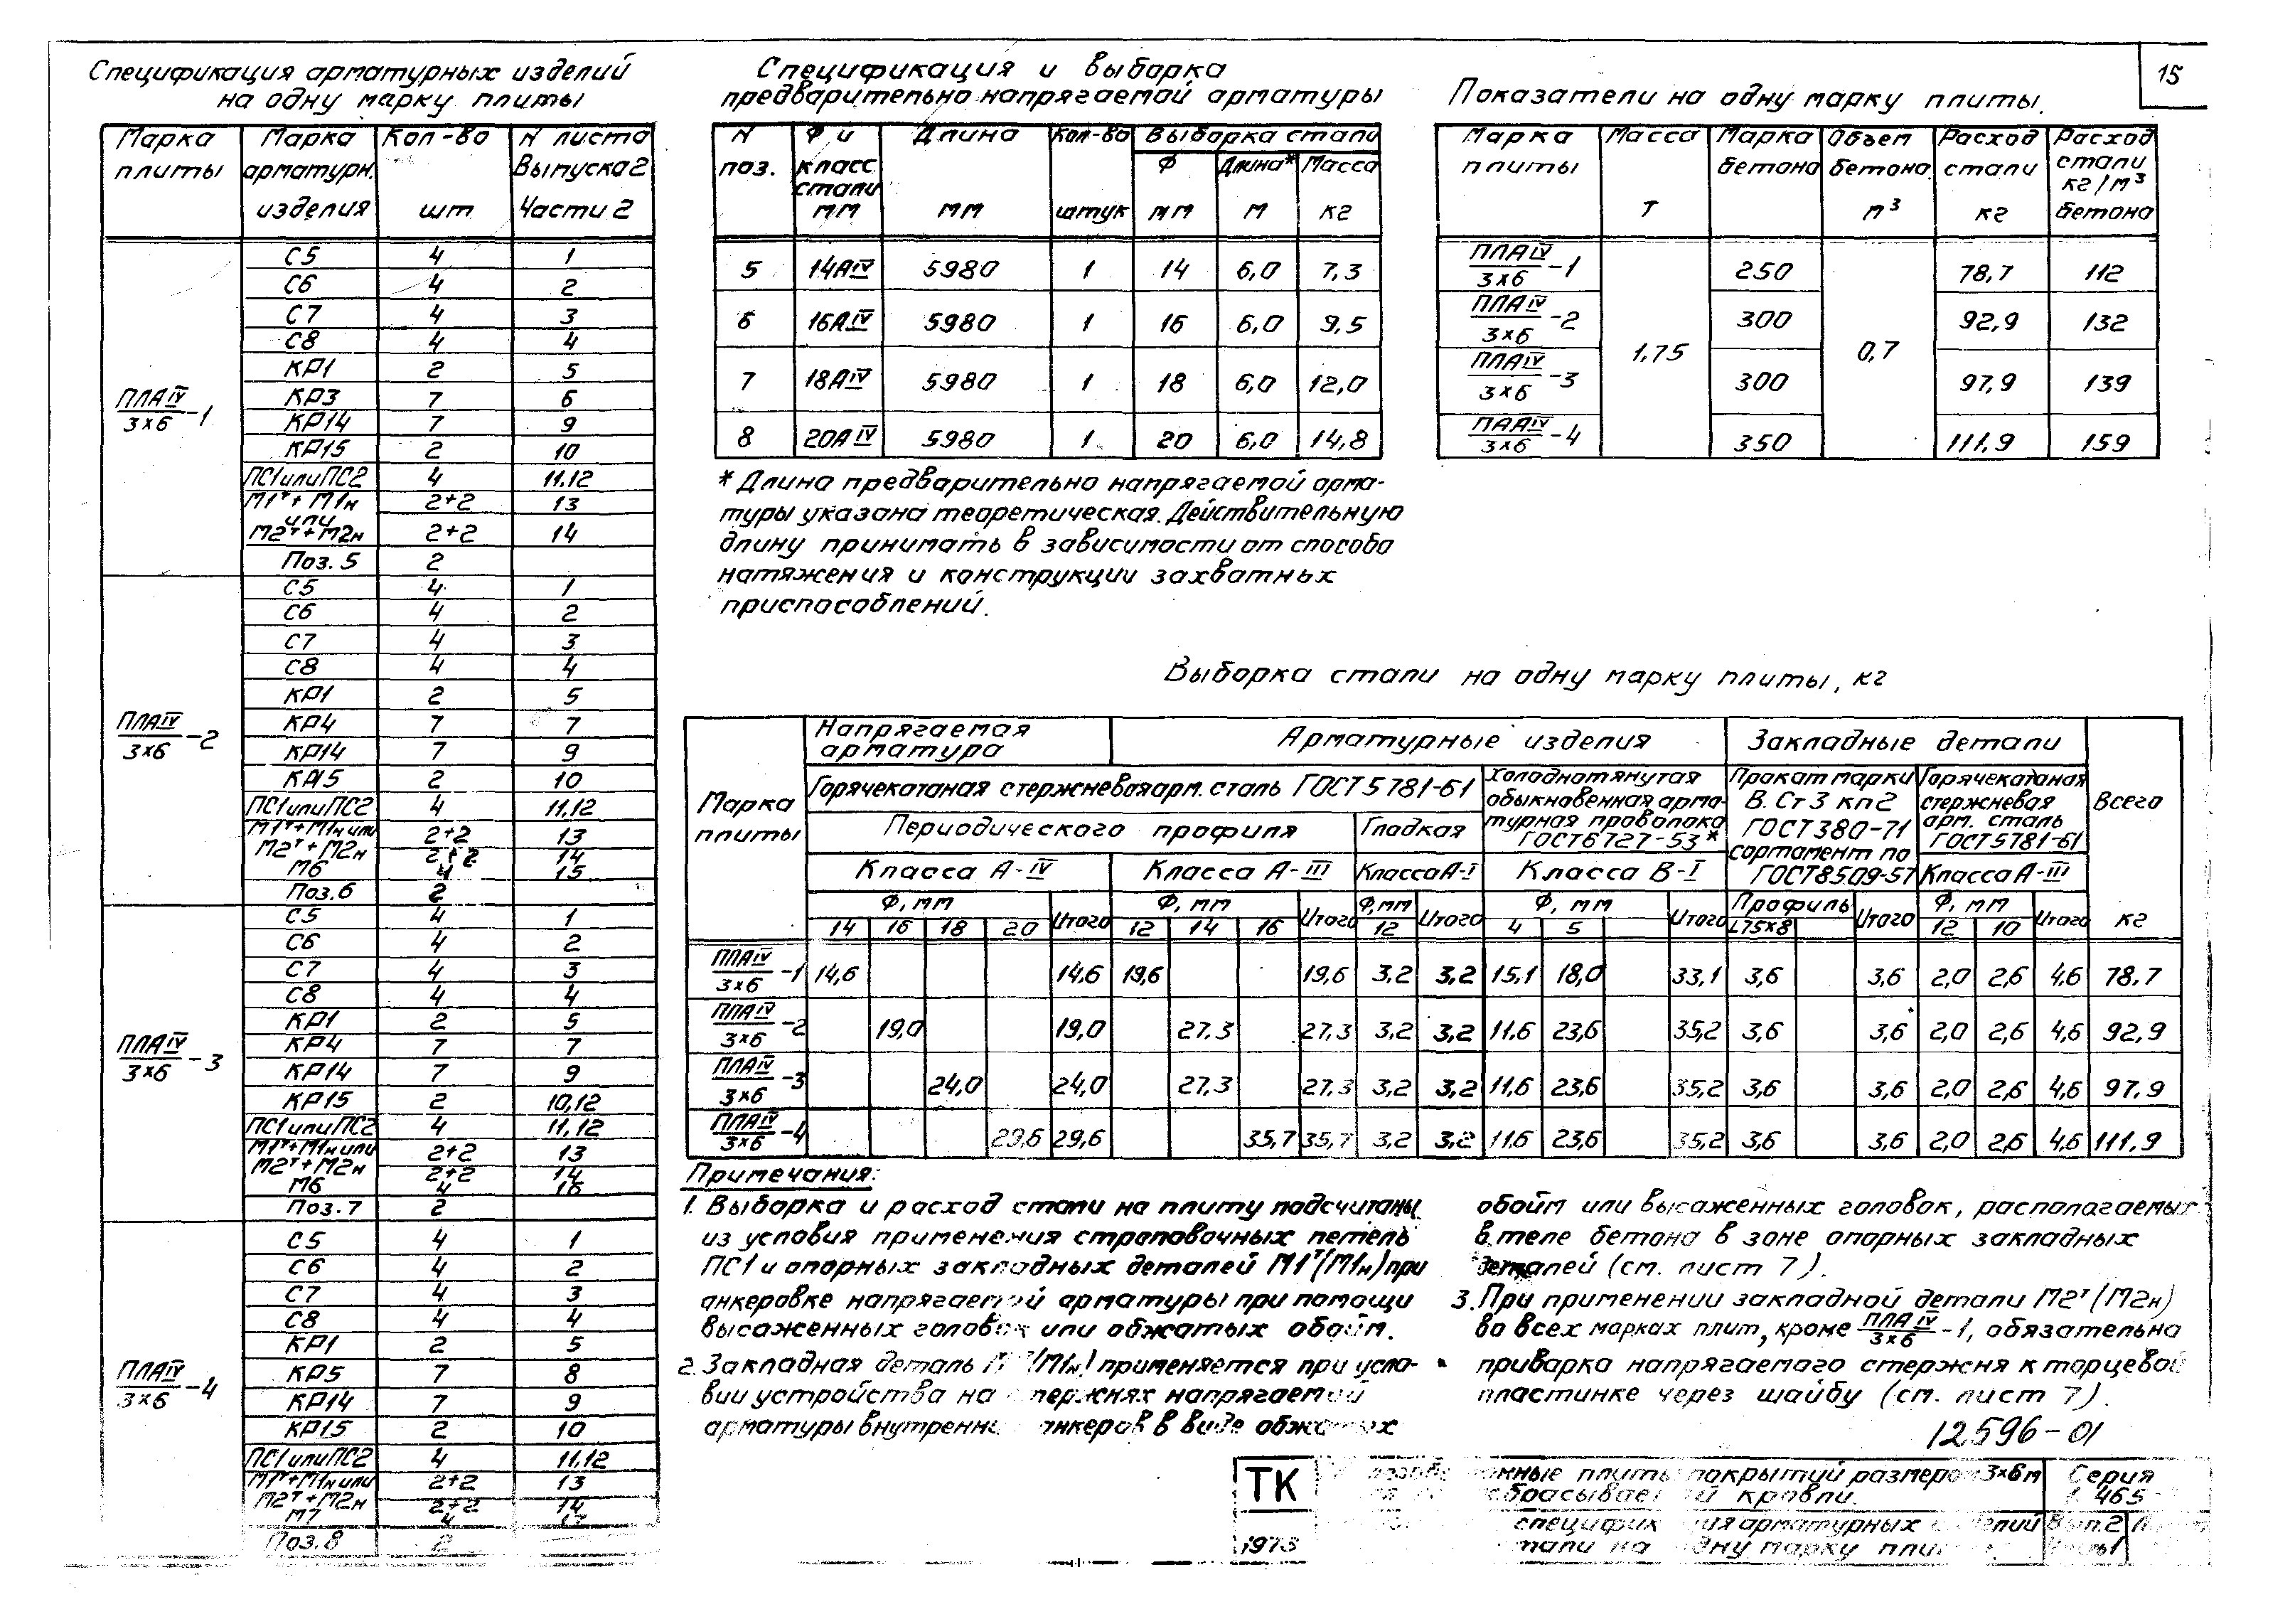 15
Спецификация арматурных изделий
на одну марку плиты
Марка плиты | Марка арматурн. изделия | Кол-во шт | N листа Выпуска 2 Части 2
ПЛАIV/3х6-1
С5 4 1
С6 4 2
С7 4 3
С8 4 4
КР1 2 5
КР3 7 6
КР14 7 9
КР15 2 10
ПС1 или ПС2 4 11.12
М1т+М1н 2+2 13
или
М2т+М2н 2+2 14
Поз. 5 2
ПЛАIV/3х6-2
С5 4 1
С6 4 2
С7 4 3
С8 4 4
КР1 2 5
КР4 7 7
КР14 7 9
КР15 2 10
ПС1 или ПС2 4 11.12
М1т+М1н или 2+2 13
М2т+М2н 2+2 14
М6 4 15
Поз.6 2
ПЛАIV/3х6-3
С5 4 1
С6 4 2
С7 4 3
С8 4 4
КР1 2 5
КР4 7 7
КР14 7 9
КР15 2 10,12
ПС1 или ПС2 4 11.12
М1т+М1н или 2+2 13
М2т+М2н 2+2 14
М6 4 16
Поз.7 2
ПЛАIV/3х6-4
С5 4 1
С6 4 2
С7 4 3
С8 4 4
КР1 2 5
КР5 7 8
КР14 7 9
КР15 2 10
ПС1 или ПС2 4 11.12
М1т+М1н или 2+2 13
М2т+М2н 2+2 14
М7 4 17
Поз.8 2
Спецификация и выборка
предварительно напрягаемой арматуры
N поз. | Ф и класс стали мм | Длина мм | Кол-во штук | Выборка стали
Ф мм | Длина* м | Масса кг
5 14АIV 5980 1 14 6,0 7,3
6 16АIV 5980 1 16 6,0 9,5
7 18АIV 5980 1 18 6,0 12,0
8 20АIV 5980 1 20 6,0 14,8
* Длина предварительно напрягаемой арма-
туры указана теоретическая. Действительную
длину принимать в зависимости от способа
натяжения и конструкции захватных
приспособлений.
Показатели на одну марку плиты.
Марка плиты | Масса т | Марка бетона | Объем бетона м³ | Расход стали кг | Расход стали кг/м³ бетона
ПЛАIV/3х6-1 250 78,7 112
ПЛАIV/3х6-2 300 92,9 132
1,75 0,7
ПЛАIV/3х6-3 300 97,9 139
ПЛАIV/3х6-4 350 111,9 159
Выборка стали на одну марку плиты, кг
Марка плиты | Напрягаемая арматура | Арматурные изделия | Закладные детали | Всего кг
Горячекатаная стержневая арм. сталь ГОСТ 5781-61 | Холоднотянутая обыкновенная арматурная проволока ГОСТ 6727-53* | Прокат марки В. Ст 3 кп 2 ГОСТ 380-71 сортамент по ГОСТ 8509-57 | Горячекатаная стержневая арм. сталь ГОСТ 5781-61
Периодического профиля | Гладкая
Класса А-IV | Класса А-III | Класса А-I | Класса В-I | Класса А-III
Ф, мм | Итого | Ф, мм | Итого | Ф, мм | Итого | Ф, мм | Итого | Профиль | Итого | Ф, мм | Итого
14 16 18 20 12 14 16 12 4 5 L75х8 12 10
ПЛАIV/3х6-1 14,6 14,6 19,6 19,6 3,2 3,2 15,1 18,0 33,1 3,6 3,6 2,0 2,6 4,6 78,7
ПЛАIV/3х6-2 19,0 19,0 27,3 27,3 3,2 3,2 11,6 23,6 35,2 3,6 3,6 2,0 2,6 4,6 92,9
ПЛАIV/3х6-3 24,0 24,0 27,3 27,3 3,2 3,2 11,6 23,6 35,2 3,6 3,6 2,0 2,6 4,6 97,9
ПЛАIV/3х6-4 29,6 29,6 35,7 35,7 3,2 3,2 11,6 23,6 35,2 3,6 3,6 2,0 2,6 4,6 111,9
Примечания:
1. Выборка и расход стали на плиту подсчитаны
из условия применения строповочных петель
ПС1 и опорных закладных деталей М1т(М1н) при
анкеровке напрягаемой арматуры при помощи
высаженных головок или обжатых обойм.
2. Закладная деталь (М1н) применяется при усло-
вии устройства на стержнях напрягаемой
арматуры внутренних анкеров в виде обжатых
обойм или высаженных головок, располагаемых
в теле бетона в зоне опорных закладных
деталей (см. лист 7).
3. При применении закладной детали М2т(М2н)
во всех марках плит, кроме ПЛАIV/3х6-1, обязательна
приварка напрягаемого стержня к торцевой
пластинке через шайбу (см. лист 7).
12596-01
ТК
1973
плиты покрытий размером 3х6м
кровли.
арматурных изделий
стали на одну марку
Серия
465
Вып.2